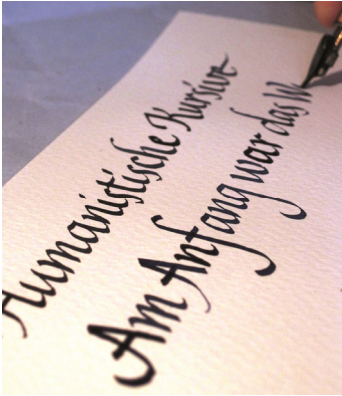 Humanistische Kursive
Am Anfang war das W